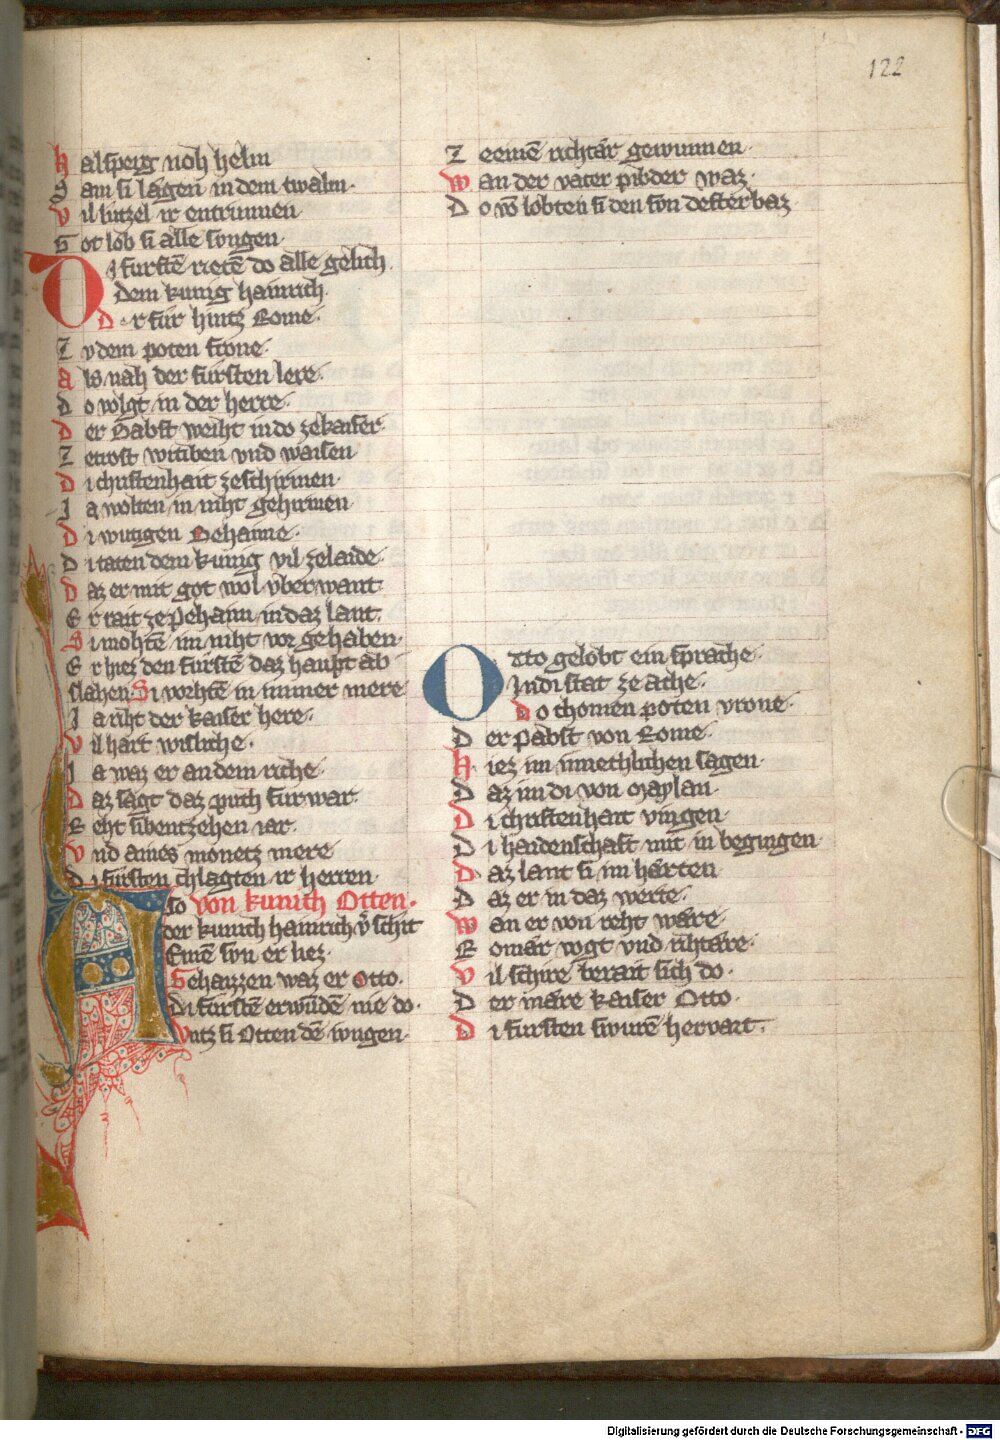 122
Halsperg noh helm
Sam si lagen in dem twalm·
Vil lutzel ir entrunnen
Got lob si alle sungen·
Di furstē rietē do alle gelich·
Dem kunig hainrich·
Daz er fur hintz Rome·
Zv dem poten frone·
Als nah der fursten lere·
Do volgt in der herre·
Der Babst weiht in do ze kaiser·
Ze trost witiben vnd waisen
Di christenhait ze schirmen·
Ja wolten in niht gehirmen
Di wutigen Behaime·
Di taten dem kunig vil ze laide·
Daz er mit got wol vber want·
Er rait ze Pehaim in daz lant·
Si mohtē im niht vor gehaben·
Er hiez den furstē daz haupt ab
slahen· Si vorhtē in immer mere
Ja riht der kaiser here·
Vil hart wisliche·
Ja waz er an dem riche·
Daz sagt daz puch fur war·
Reht sibentzehen iar·
Vnd aines monetz mere
Di fursten chlagten ir herren·
Also von kunich Otten·
der kunich hainrich v̄schit
Einē sun er liez·
Gehaizzen waz er Otto·
Di furstē erwūdē nie do·
Vntz si Otten dē iungen·
Ze einē richtår gewunnen·
Wan der vater piderb waz·
Do vō lobten si den sūn dester baz
Otto gelobt ein sprache·
In di stat ze Ache·
Do chomen poten vrone·
Der Pabst von Rome·
Hiez im innechlichen sagen·
Daz im di von Maylan·
Di christenhait viengen·
Di haidenschaft mit in begingen·
Daz lant si im hårten
Daz er in daz werte·
Wan er von reht wåre·
Romår vogt vnd rihtåre·
Vil schire berait sich do·
Der mare kaiser Otto·
Di fursten swurē hervart·
Digitalisierung gefördert durch die Deutsche Forschungsgemeinschaft - DFG